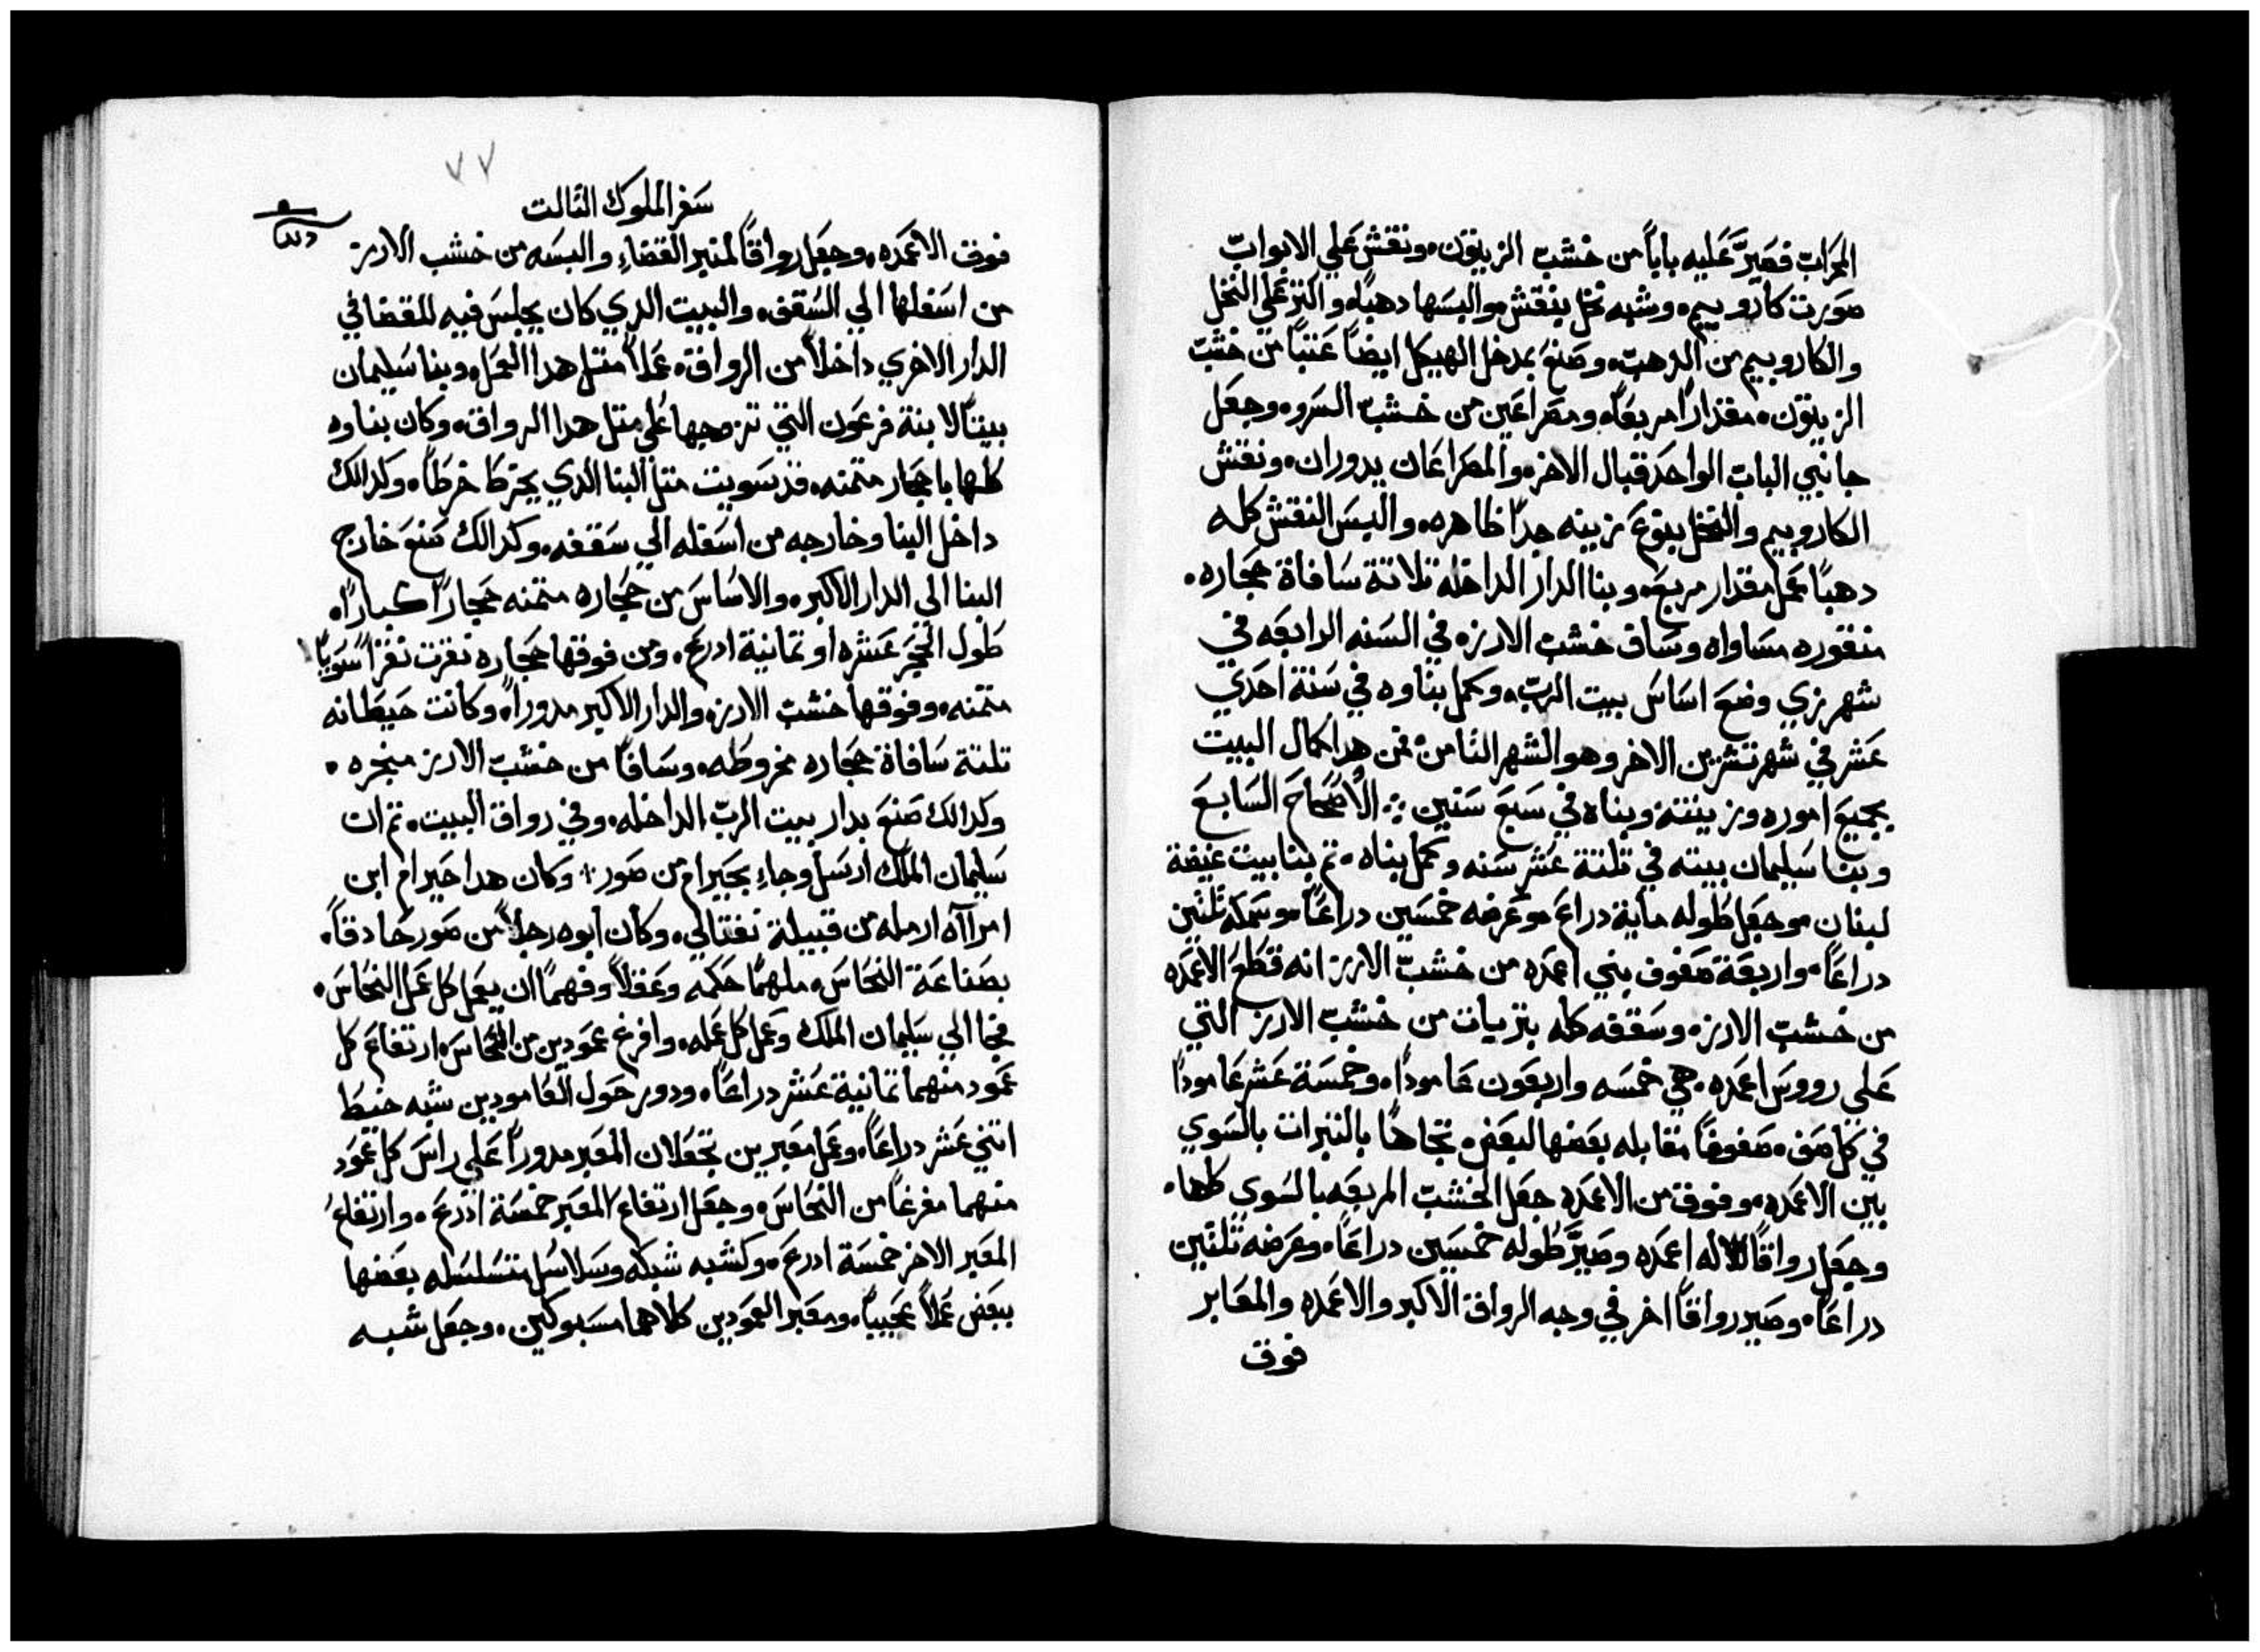 المحراب فصيَّر عليه باباً من خشب الزيتون. ونقش علي الابواب
صورت كاروبيم. وشبه نخل ينقش. والبسها دهباً. والنز علي النخل
والكاروبيم من الدهب. وصنع بمدخل الهيكل ايضاً عتباً من خشب
الزيتون. مقداراً مربعاً. ومصراعين من خشب السرو. وجعل
جانبي الباب الواحد قبال الاخر. والمصراعان يدوران. ونقش
الكاروبيم والنخل بنوع زينه جداً ظاهره. والبس النقش كله
دهباً عمل مقدار مربع. وبنا الدار الداخله تلاتة سافاة حجاره.
منقوره مساواه وساف خشب الارز. في السنه الرابعه في
شهر زي وضع اساس بيت الرب. وكمل بناوه في سنة احدي
عشر في شهر تشرين الاخر وهو الشهر التامن. فمن هدا كمال البيت
بجميع اموره وزينته وبناه في سبع سنين ⁘ الاصحاح السابع
وبنا سليمان بيته في تلتة عشر سنه وكمل بناه. تم بنا بيت غيضة
لبنان. وجعل طوله ماية دراع. وعرضه خمسين دراعاً. وسمكه تلتين
دراعاً. واربعة صفوف بني اعمده من خشب الارز انه قطع الاعمده
من خشب الارز. وسقفه كله بتزيات من خشب الارز التي
علي رووس اعمده. هي خمسه واربعون عاموداً. وخمسة عشر عاموداً
في كل صف. صفوفاً مقابله بعضها لبعض. تجاهاً بالنيرات بالسوي
بين الاعمده. وفوق من الاعمده جعل الخشب المربعه بالسوي كلها.
وجعل رواقاً لاله اعمده وصيَّر طوله خمسين دراعاً. وعرضه تلتين
دراعاً. وصير رواقاً اخر في وجه الرواق الاكبر والاعمده والمعابر
فوق
٧٧
سفر الملوك التالت
فوق الاعمده. وجعل رواقاً لمنبر القضاءِ والبسه من خشب الارز
من اسفلها الي السقف. والبيت الدي كان يجلس فيه للقضا في
الدار الاخري داخلاً من الرواق. عملاً متل هدا العمل. وبنا سليمان
بيتاً لابنة فرعون التي تزوجها علي متل هدا الرواق. وكان بناوه
كلها باحجار متمنه. قد سويت متل البنا الدي يخرط خرطاً. وكدالك
داخل البنا وخارجه من اسفله الي سقفه. وكدالك صنع خارج
البنا الي الدار الاكبر. والاساس من حجاره متمنه حجاراً كباراً.
طول الحجر عشره او تمانية ادرع. ومن فوقها حجاره نقرت نقراً سوياً
متمنه. وفوقها خشب الارز. والدار الاكبر مدوراً. وكانت حيطانه
تلتة سافاة حجاره مخروطه. وسافاً من خشب الارز منجره.
وكدالك صنع بدار بيت الرب الداخله. وفي رواق البيت. تم ان
سليمان الملك ارسل وجاء بحيرام من صور: وكان هدا حيرام ابن
امرااه ارمله من قبيلة نفتالي. وكان ابوه رجلاً من صور حادقاً.
بصناعة النحاس. ملهماً حكمه وعقلاً وفهماً ان يعمل كل عمل النحاس.
فجا الي سليمان الملك وعمل كل عمله. وافرغ عمودين من النحاس. ارتفاع كل
عمود منهما تمانية عشر دراعاً. ودور حول العامودين شبه خيط
اتني عشر دراعاً. وعمل معبرين تجعلان المعبر مدوراً علي راس كل عمود
منهما مفرغاً من النحاس. وجعل ارتفاع المعبر خمسة ادرع. وارتفاع
المعبر الاخر خمسة ادرع. وكشبه شبكه وسلاسل متسلسله بعضها
ببعض عملاً عجيباً. ومعبر العمودين كلاهما مسبوكين. وجعل شبه